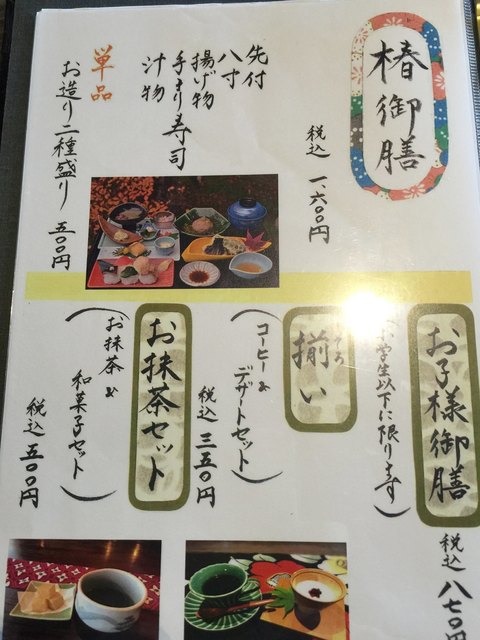 椿御膳
税込 一、六〇〇円
先付
八寸
揚げ物
手まり寿司
汁物
単品
お造り二種盛り 五〇〇円
お子様御膳
学生以下に限ります)
税込 八七〇
揃い
(コーヒー&
デザートセット)
税込 三五〇円
お抹茶セット
(お抹茶&
和菓子セット)
税込 五〇〇円